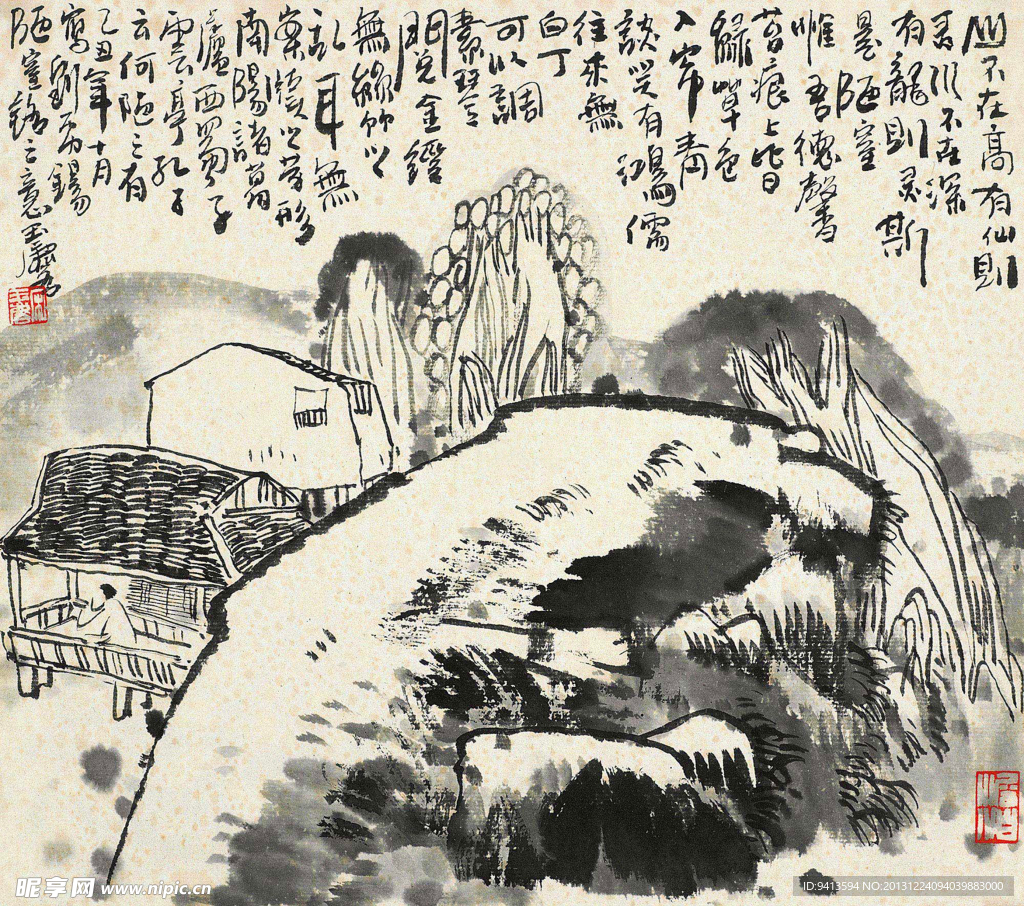 山不在高有仙則
名水不在深
有龍則灵斯
是陋室
惟吾德馨
苔痕上皆
綠草色
入帘青
談笑有鴻儒
往來無
白丁
可以調
素琴
閱金經
無絲竹之
乱耳無
案牘之勞形
南陽諸葛
廬西蜀子
雲亭孔子
云何陋之有
己丑年十月
寫劉禹錫
陋室銘之意玉
昵享网 www.nipic.cn
ID:9413594 NO:20131224094039883000